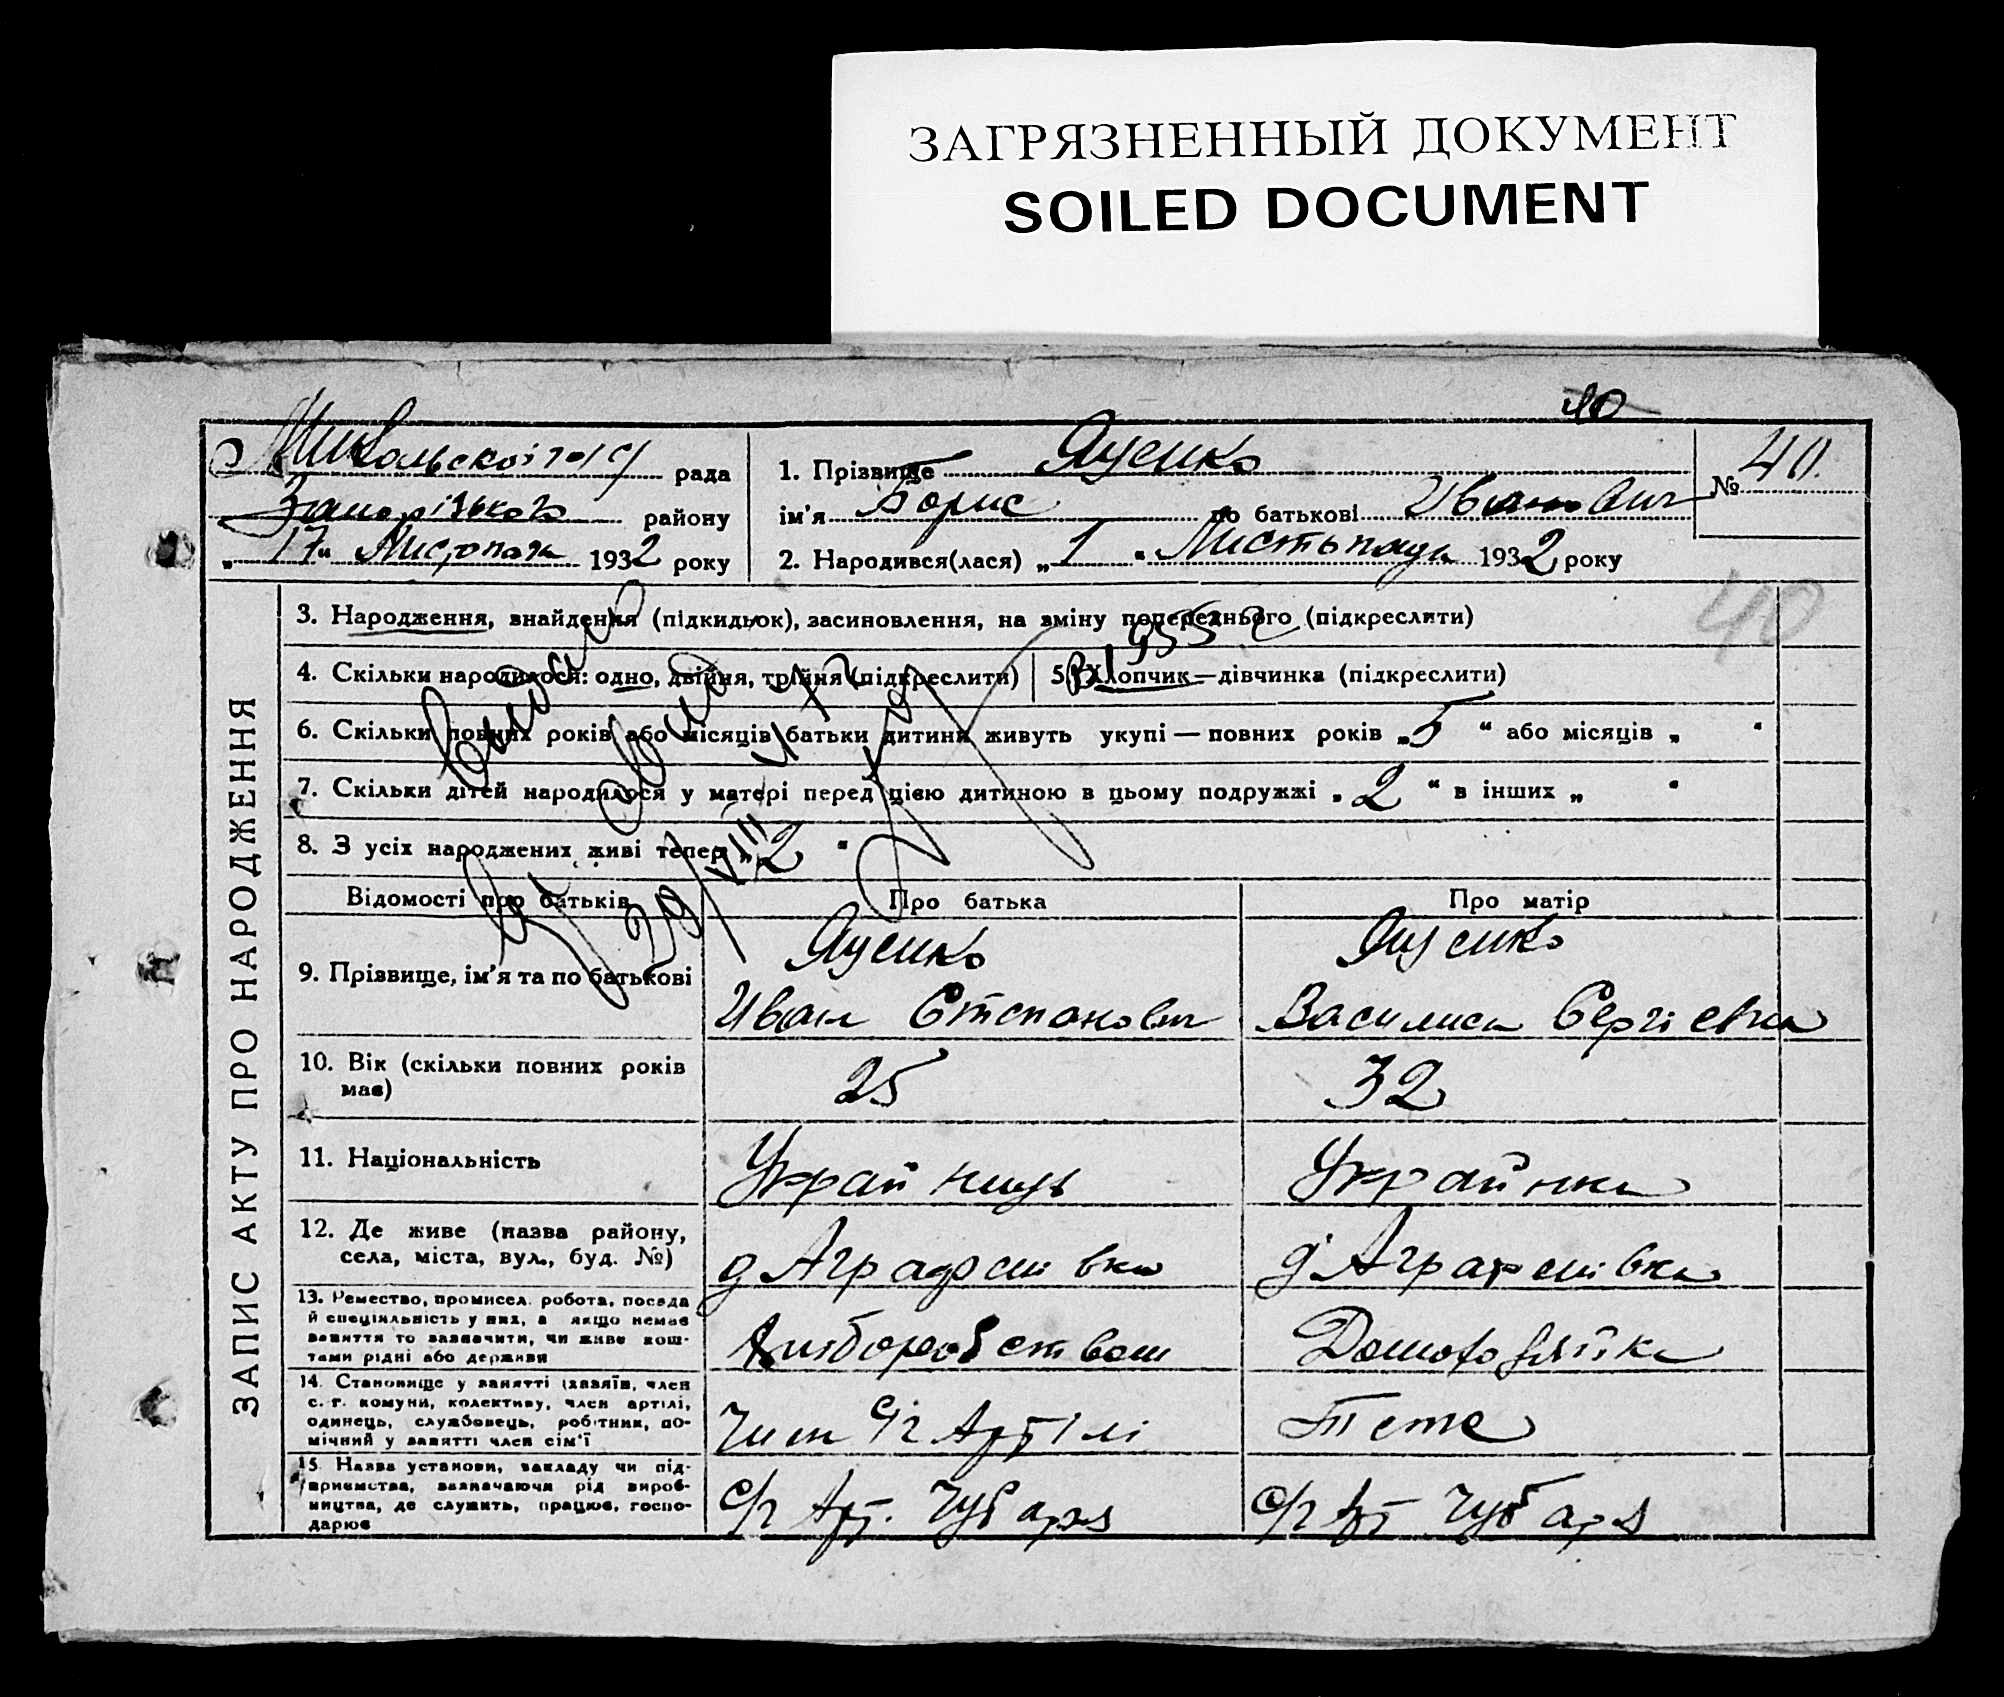 ЗАГРЯЗНЕННЫЙ ДОКУМЕНТ
SOILED DOCUMENT
40
рада
району
„17“ 1932 року
1. Прізвище Яценко
ім'я Борис по батькові Иванович
№ 40.
2. Народився(лася) „1“ Листопада 1932 року
40
ЗАПИС АКТУ ПРО НАРОДЖЕННЯ
3. Народження, знайдення (підкидьок), засиновлення, на зміну попереднього (підкреслити)
4. Скільки народилося: одно, двійня, трійня (підкреслити)
5. Хлопчик—дівчинка (підкреслити)
6. Скільки повних років або місяців батьки дитини живуть укупі — повних років „5“ або місяців „ “
7. Скільки дітей народилося у матері перед цією дитиною в цьому подружжі „2“ в інших „ “
8. З усіх народжених живі тепер „2“
29/VIII
Відомості про батьків
Про батька
Про матір
9. Прізвище, ім'я та по батькові
Яценко
Иван Степанович
Яценко
Василиса Сергієвна
10. Вік (скільки повних років має)
25
32
11. Національність
Українець
Українка
12. Де живе (назва району,
села, міста, вул., буд. №)
д Аграфенівка
д Аграфенівка
13. Ремество, промисел. робота, посада
й спеціяльність у них, а якщо немає
заняття то зазначити, чи живе кош-
тами рідні або держави
Хліборобством
Домохозяйка
14. Становище у занятті (хазяїн, член
с.-г. комуни, колективу, член артілі,
одинець, службовець, робітник, по-
мічний у занятті член сім'ї
Член С/г Артілі
Теже
15. Назва установи, закладу чи під-
приємства, зазначаючи рід вироб-
ництва, де служить, працює, госпо-
дарює
С/г Арт. Чубаря
С/г Арт Чубаря